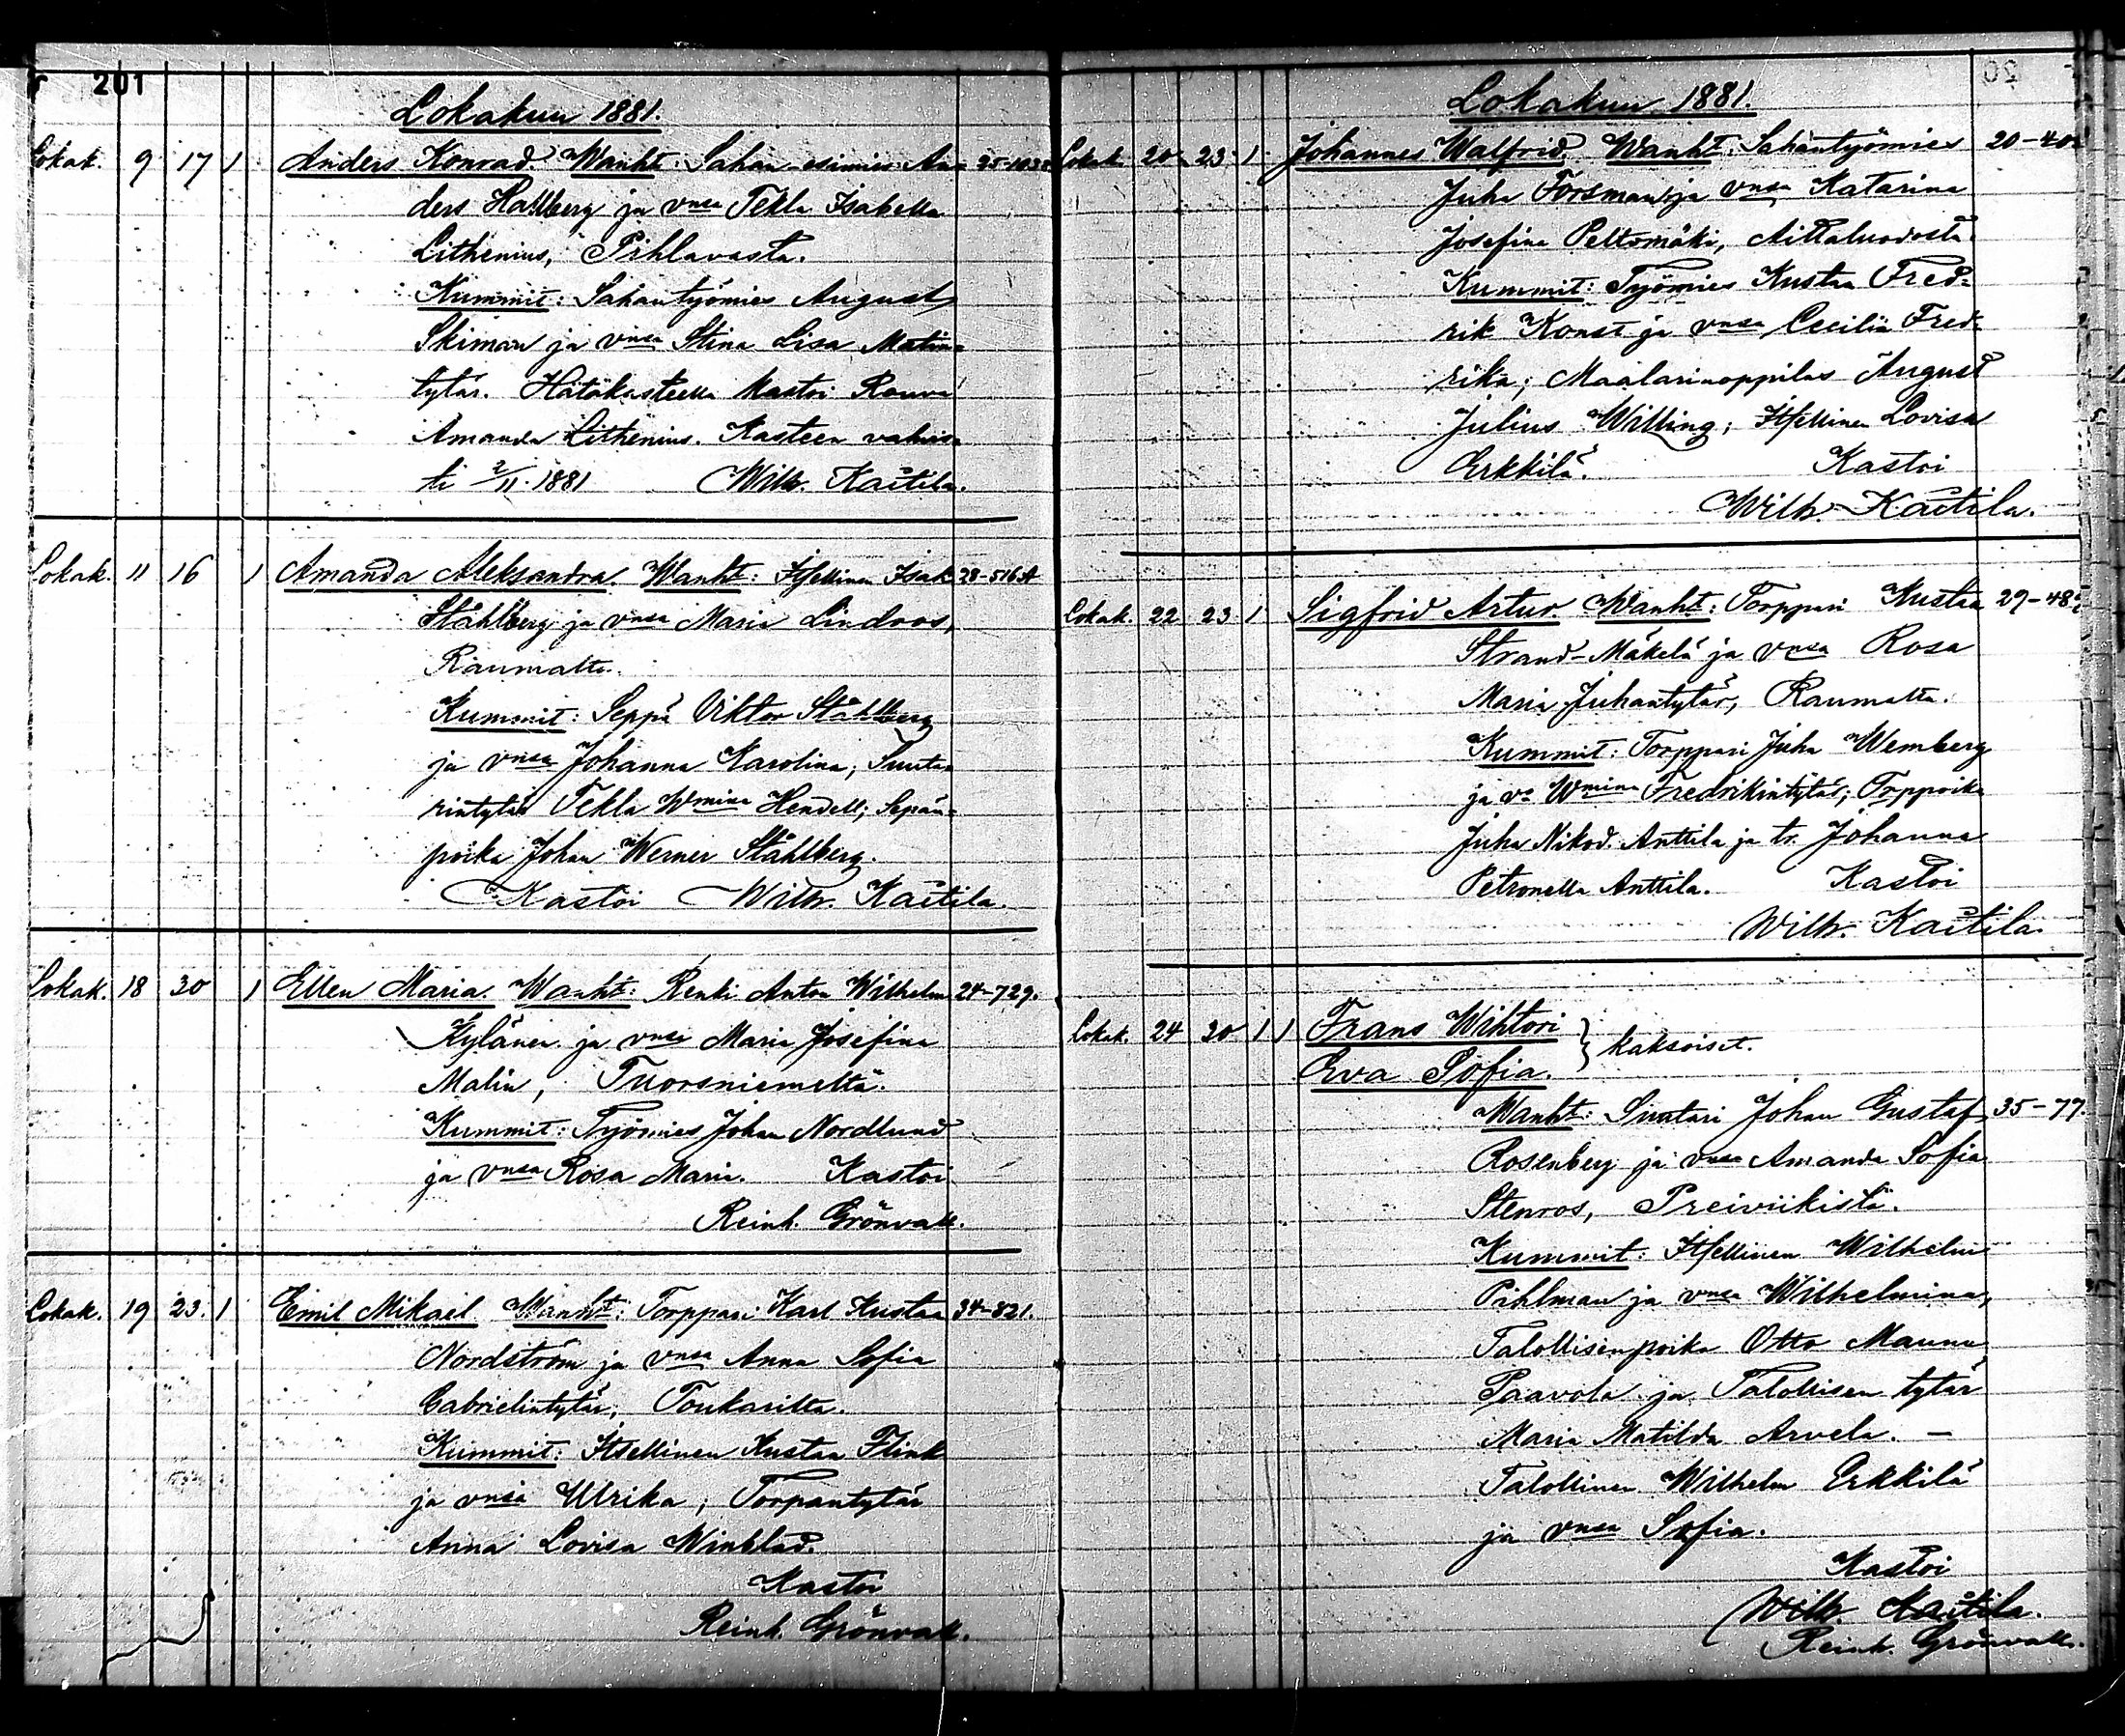 201
Lokakuu 1881.
Lokak. 9 17 1 Anders Konrad. Wanht: Sahan-esimies An-
ders Hallberg ja vnsa Tekla Isabella
Lithenius, Pihlavasta.
Kummit: Sahantyömies August
Skiman ja vnsa Stina Lisa Matin-
tytär. Hätäkasteella kastoi Rouva
Amanda Lithenius. Kasteen vahvis-
ti 2/11. 1881 Wilh. Kaitila.
Lokak. 11 16 1 Amanda Aleksandra. Wanht: Itsellinen Isak 28-516A
Ståhlberg ja vnsa Maria Lindroos,
Raumalta.
Kummit: Seppä Viktor Ståhlberg
ja vnsa Johanna Karolina; Suuta-
rintytär Tekla Wmina Hendell; Sepän-
poika Johan Werner Ståhlberg.
Kastoi Wilh. Kaitila.
Lokak. 18 30 1 Ellen Maria. Wanht: Renki Anton Wilhelm 24-729.
Kylänen ja vnsa Maria Josefina
Malin, Tuorsniemeltä.
Kummit: Työmies Johan Nordlund
ja vnsa Rosa Maria. Kastoi
Reinh. Grönvall.
Lokak. 19 23. 1 Emil Mikael Wanht: Torppari Karl Kustaa 34-821.
Nordström ja vnsa Anna Sofia
Gabrielintytär, Toukarilta.
Kummit: Itsellinen Kustaa Flink
ja vnsa Ulrika; Torpantytär
Anna Lovisa Winblad.
Kastoi
Reinh. Grönvall.
Lokakuu 1881.
Lokak. 20 23 1 Johannes Walfrid. Wanht: Sahantyömies
Juha Forsman ja vnsa Katarina
Josefina Peltomäki, Aittaluodosta.
Kummit: Työmies Kustaa Fred-
rik Konst ja vnsa Cecilia Fred-
rika; Maalarinoppilas August
Julius Willing; Itsellinen Lovisa
Erkkilä. Kastoi
Wilh. Kaitila.
Lokak. 22 23 1 Sigfrid Artur. Wanht: Torppari Kustaa
Strand-Mäkelä ja vnsa Rosa
Maria Juhantytär, Raumalta.
Kummit: Torppari Juha Wemberg
ja vo Wmina Fredrikintytär; Torppoika
Juha Nikod. Anttila ja tr. Johanna
Petronella Anttila. Kastoi
Wilh. Kaitila.
Lokak. 24 30 1 1 Frans Wihtori
Eva Sofia. } kaksoiset.
Wanht: Suutari Johan Gustaf 35-77.
Rosenberg ja vnsa Amanda Sofia
Stenros, Preiviikistä.
Kummit: Itsellinen Wilhelm
Pihlman ja vnsa Wilhelmina,
Talollisenpoika Otto Maunu
Paavola ja Talollisen tytär
Maria Matilda Arvela. –
Talollinen Wilhelm Erkkilä
ja vnsa Sofia.
Kastoi
Wilh. Kaitila.
Reinh. Grönvall.